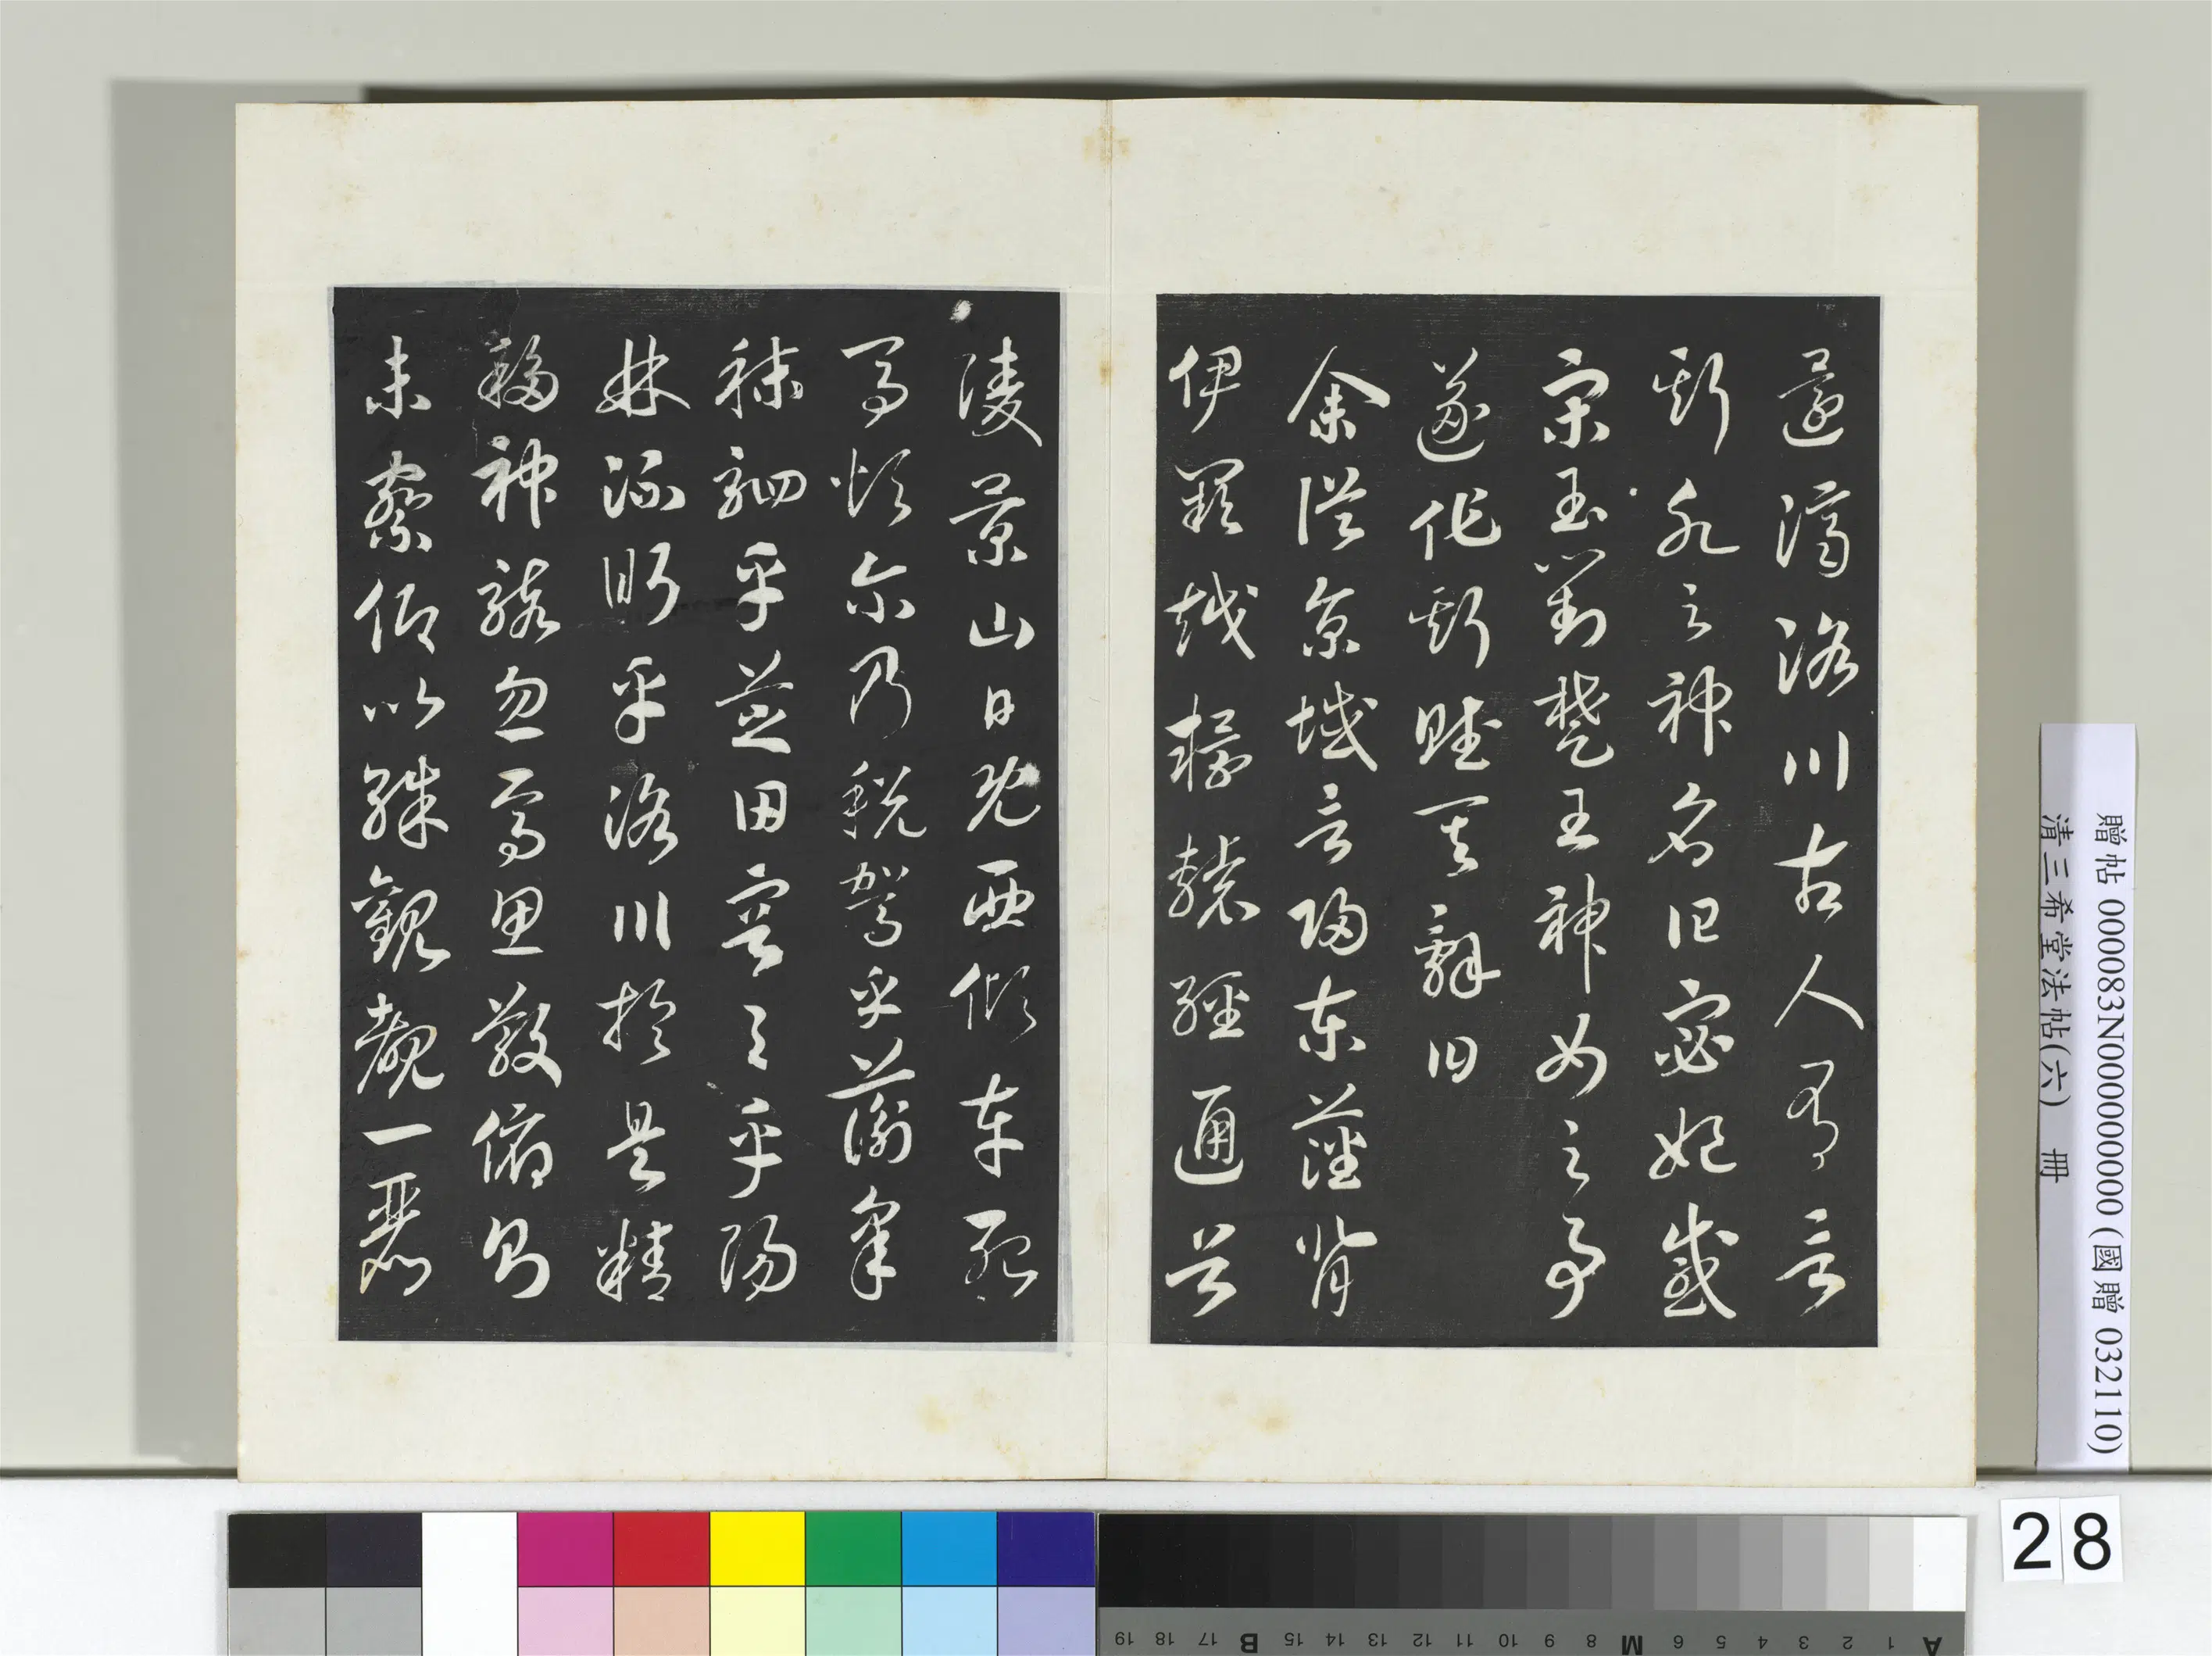 還濟洛川古人有言
斯水之神名曰宓妃感
宋玉對楚王神女之事
遂作斯賦其辭曰
余從京域言歸東藩背
伊闕越轘轅經通谷
陵景山日既西傾車殆
馬煩尔乃稅駕乎蘅皋
秣駟乎芝田容與乎陽
林流眄乎洛川於是精
移神駭忽焉思散俯則
未察仰以殊觀覩一麗
贈帖 000083N000000000 (國贈 032110)
清三希堂法帖(六) 冊
28
A 1 2 3 4 5 6 M 8 9 10 11 12 13 14 15 B 17 18 19